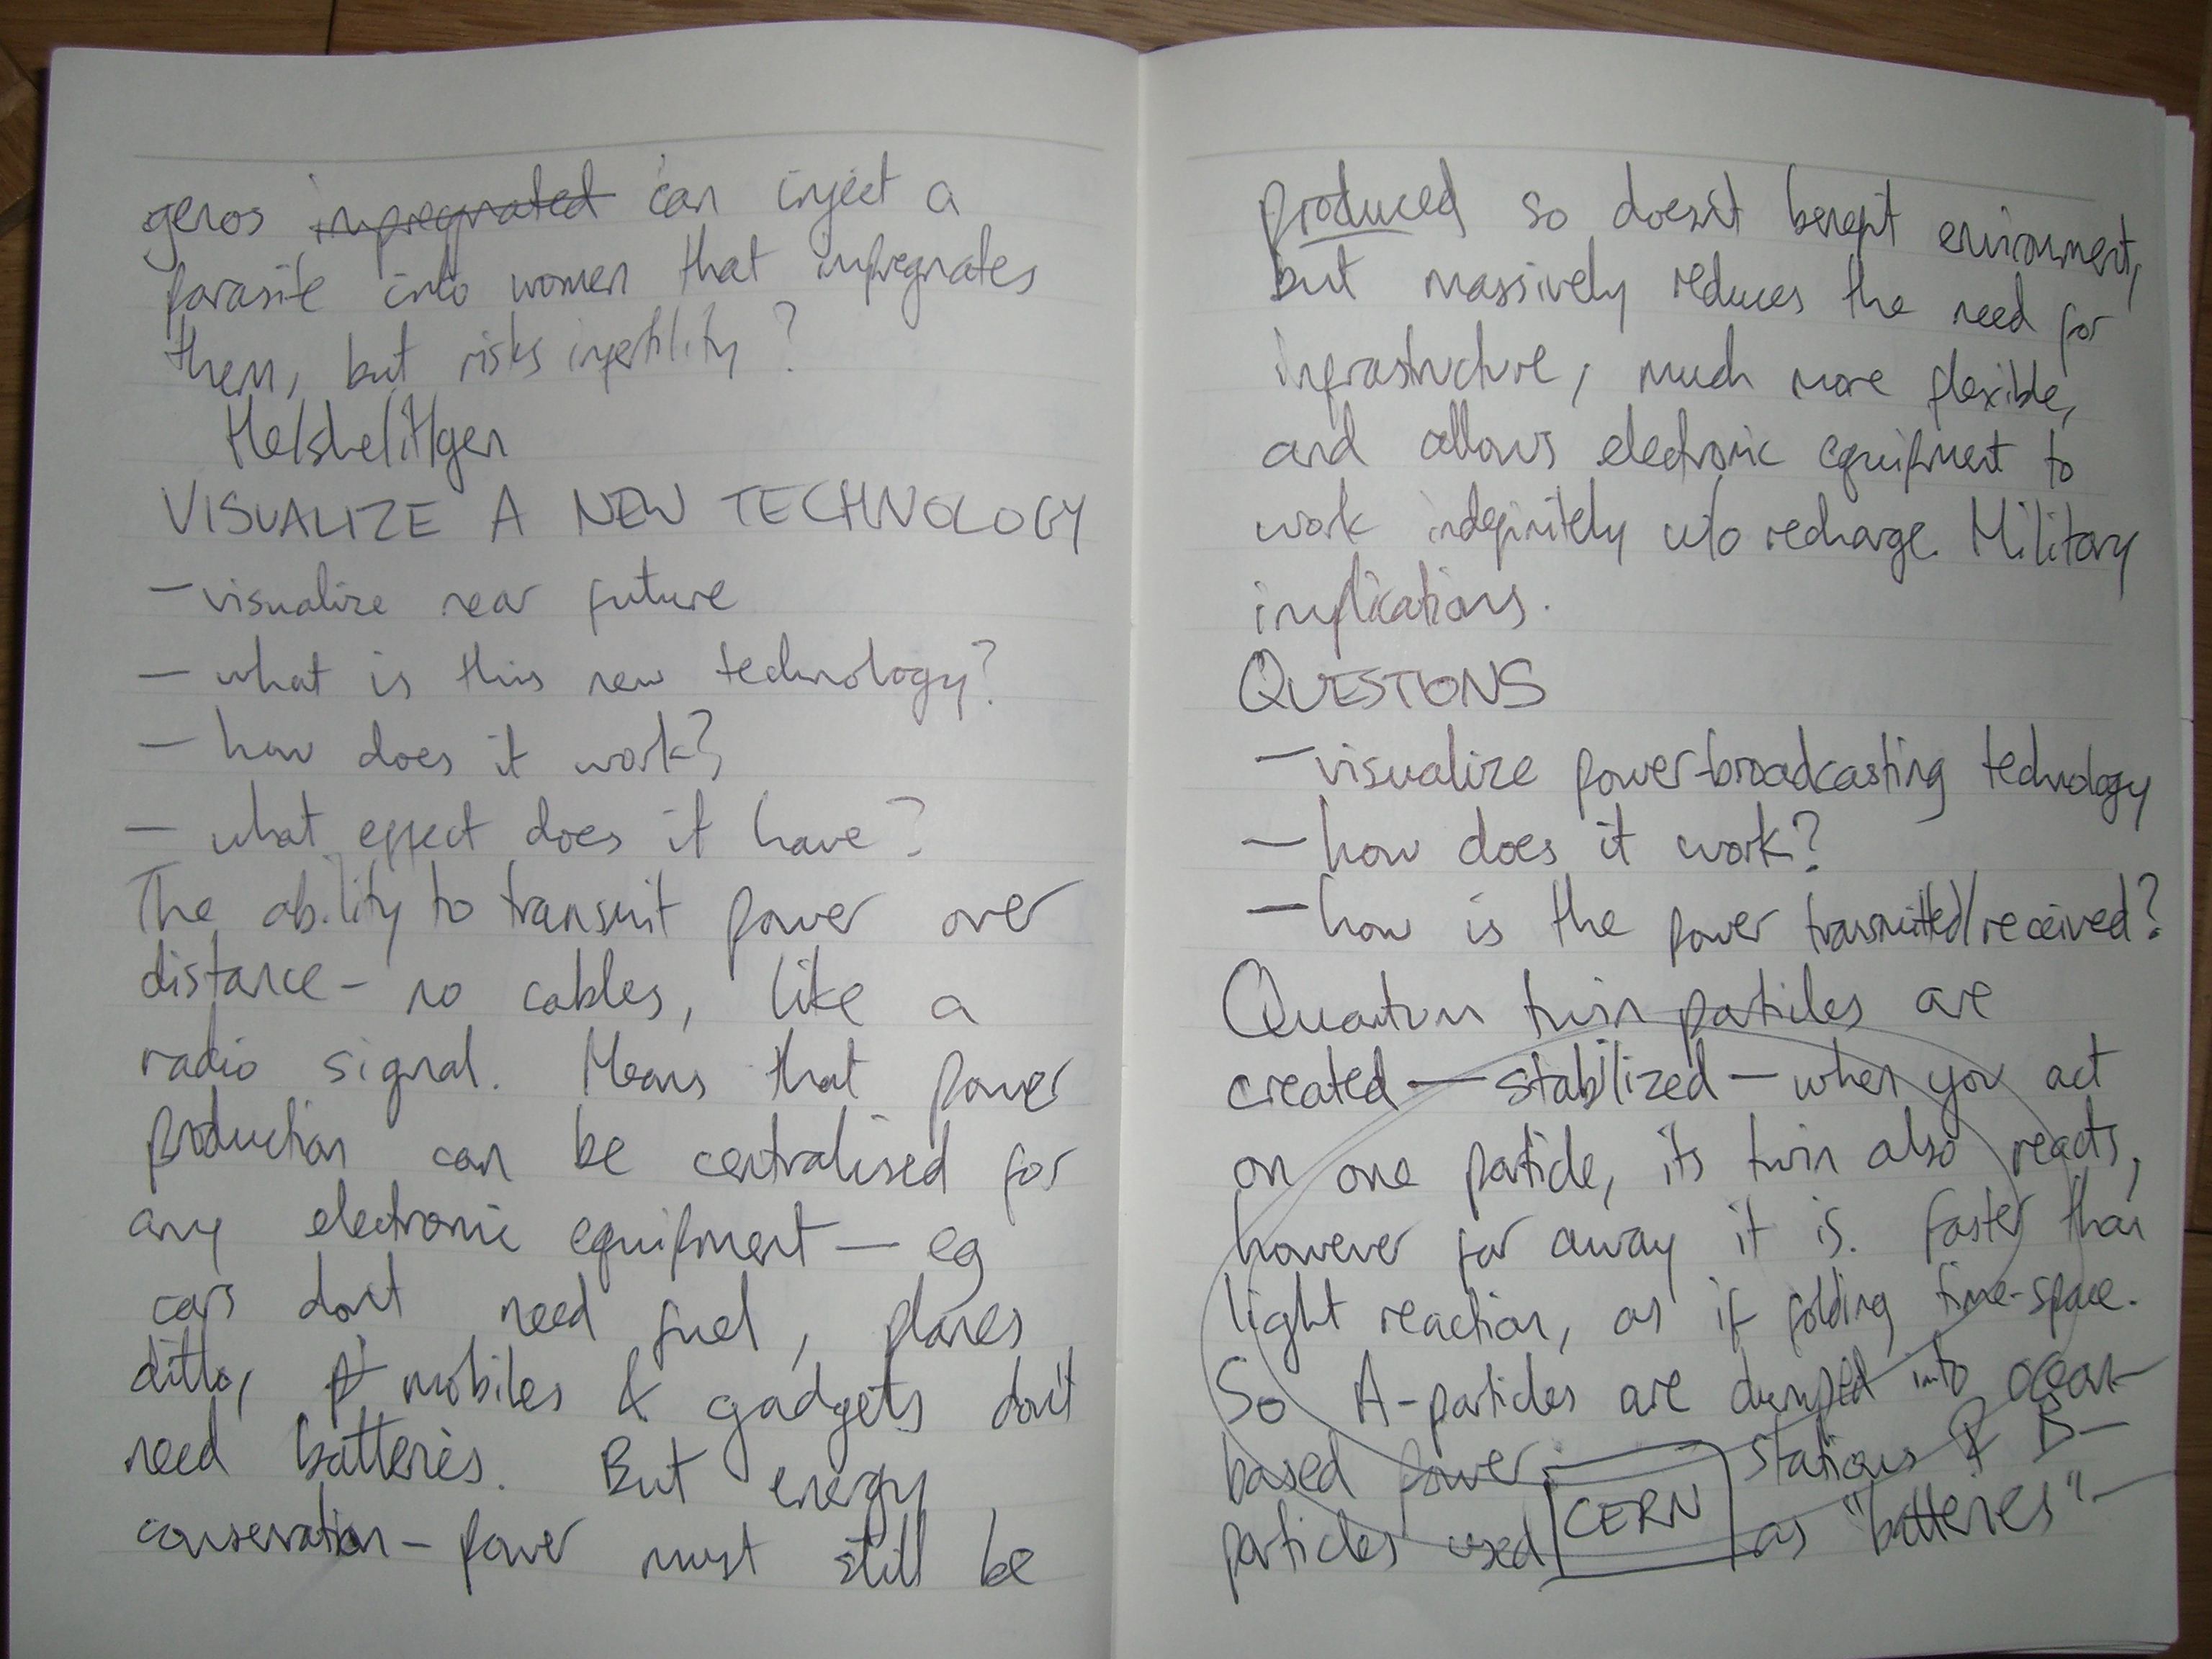 genos impregnated can inject a
parasite into women that impregnates
them, but risks infertility?
He/she/it/gen
VISUALIZE A NEW TECHNOLOGY
- visualize near future
- what is this new technology?
- how does it work?
- what effect does it have?
The ability to transmit power over
distance - no cables, like a
radio signal. Means that power
production can be centralised for
any electronic equipment - eg
cars don't need fuel, planes
ditto, mobiles & gadgets don't
need batteries. But energy
conservation - power must still be
produced so doesn't benefit environment,
but massively reduces the need for
infrastructure, much more flexible,
and allows electronic equipment to
work indefinitely w/o recharge. Military
implications.
QUESTIONS
- visualize power-broadcasting technology
- how does it work?
- how is the power transmitted/received?
Quantum twin particles are
created - stabilized - when you act
on one particle, its twin also reacts,
however far away it is. Faster than
light reaction, as if folding time-space.
So A-particles are dumped into ocean-
based power stations & B-
particles used CERN as "batteries" -